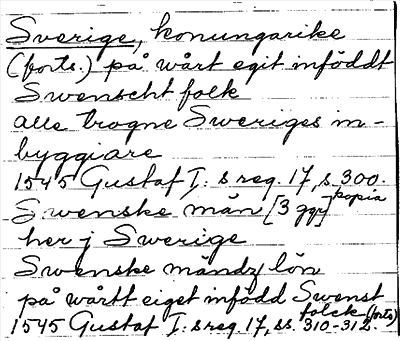 Sverige, konungarike
(forts.) på wårt egit inföddt
Swenscht folk
alle trogne Sweriges in-
byggiare
1545 Gustaf I: s reg. 17, s. 300.
Swenske män [3 ggr] kopia
her j Swerige
Swenske mändz lön
på wårtt eiget infödd Swenst
folck (forts)
1545 Gustaf I: s reg. 17, ss. 310-312.